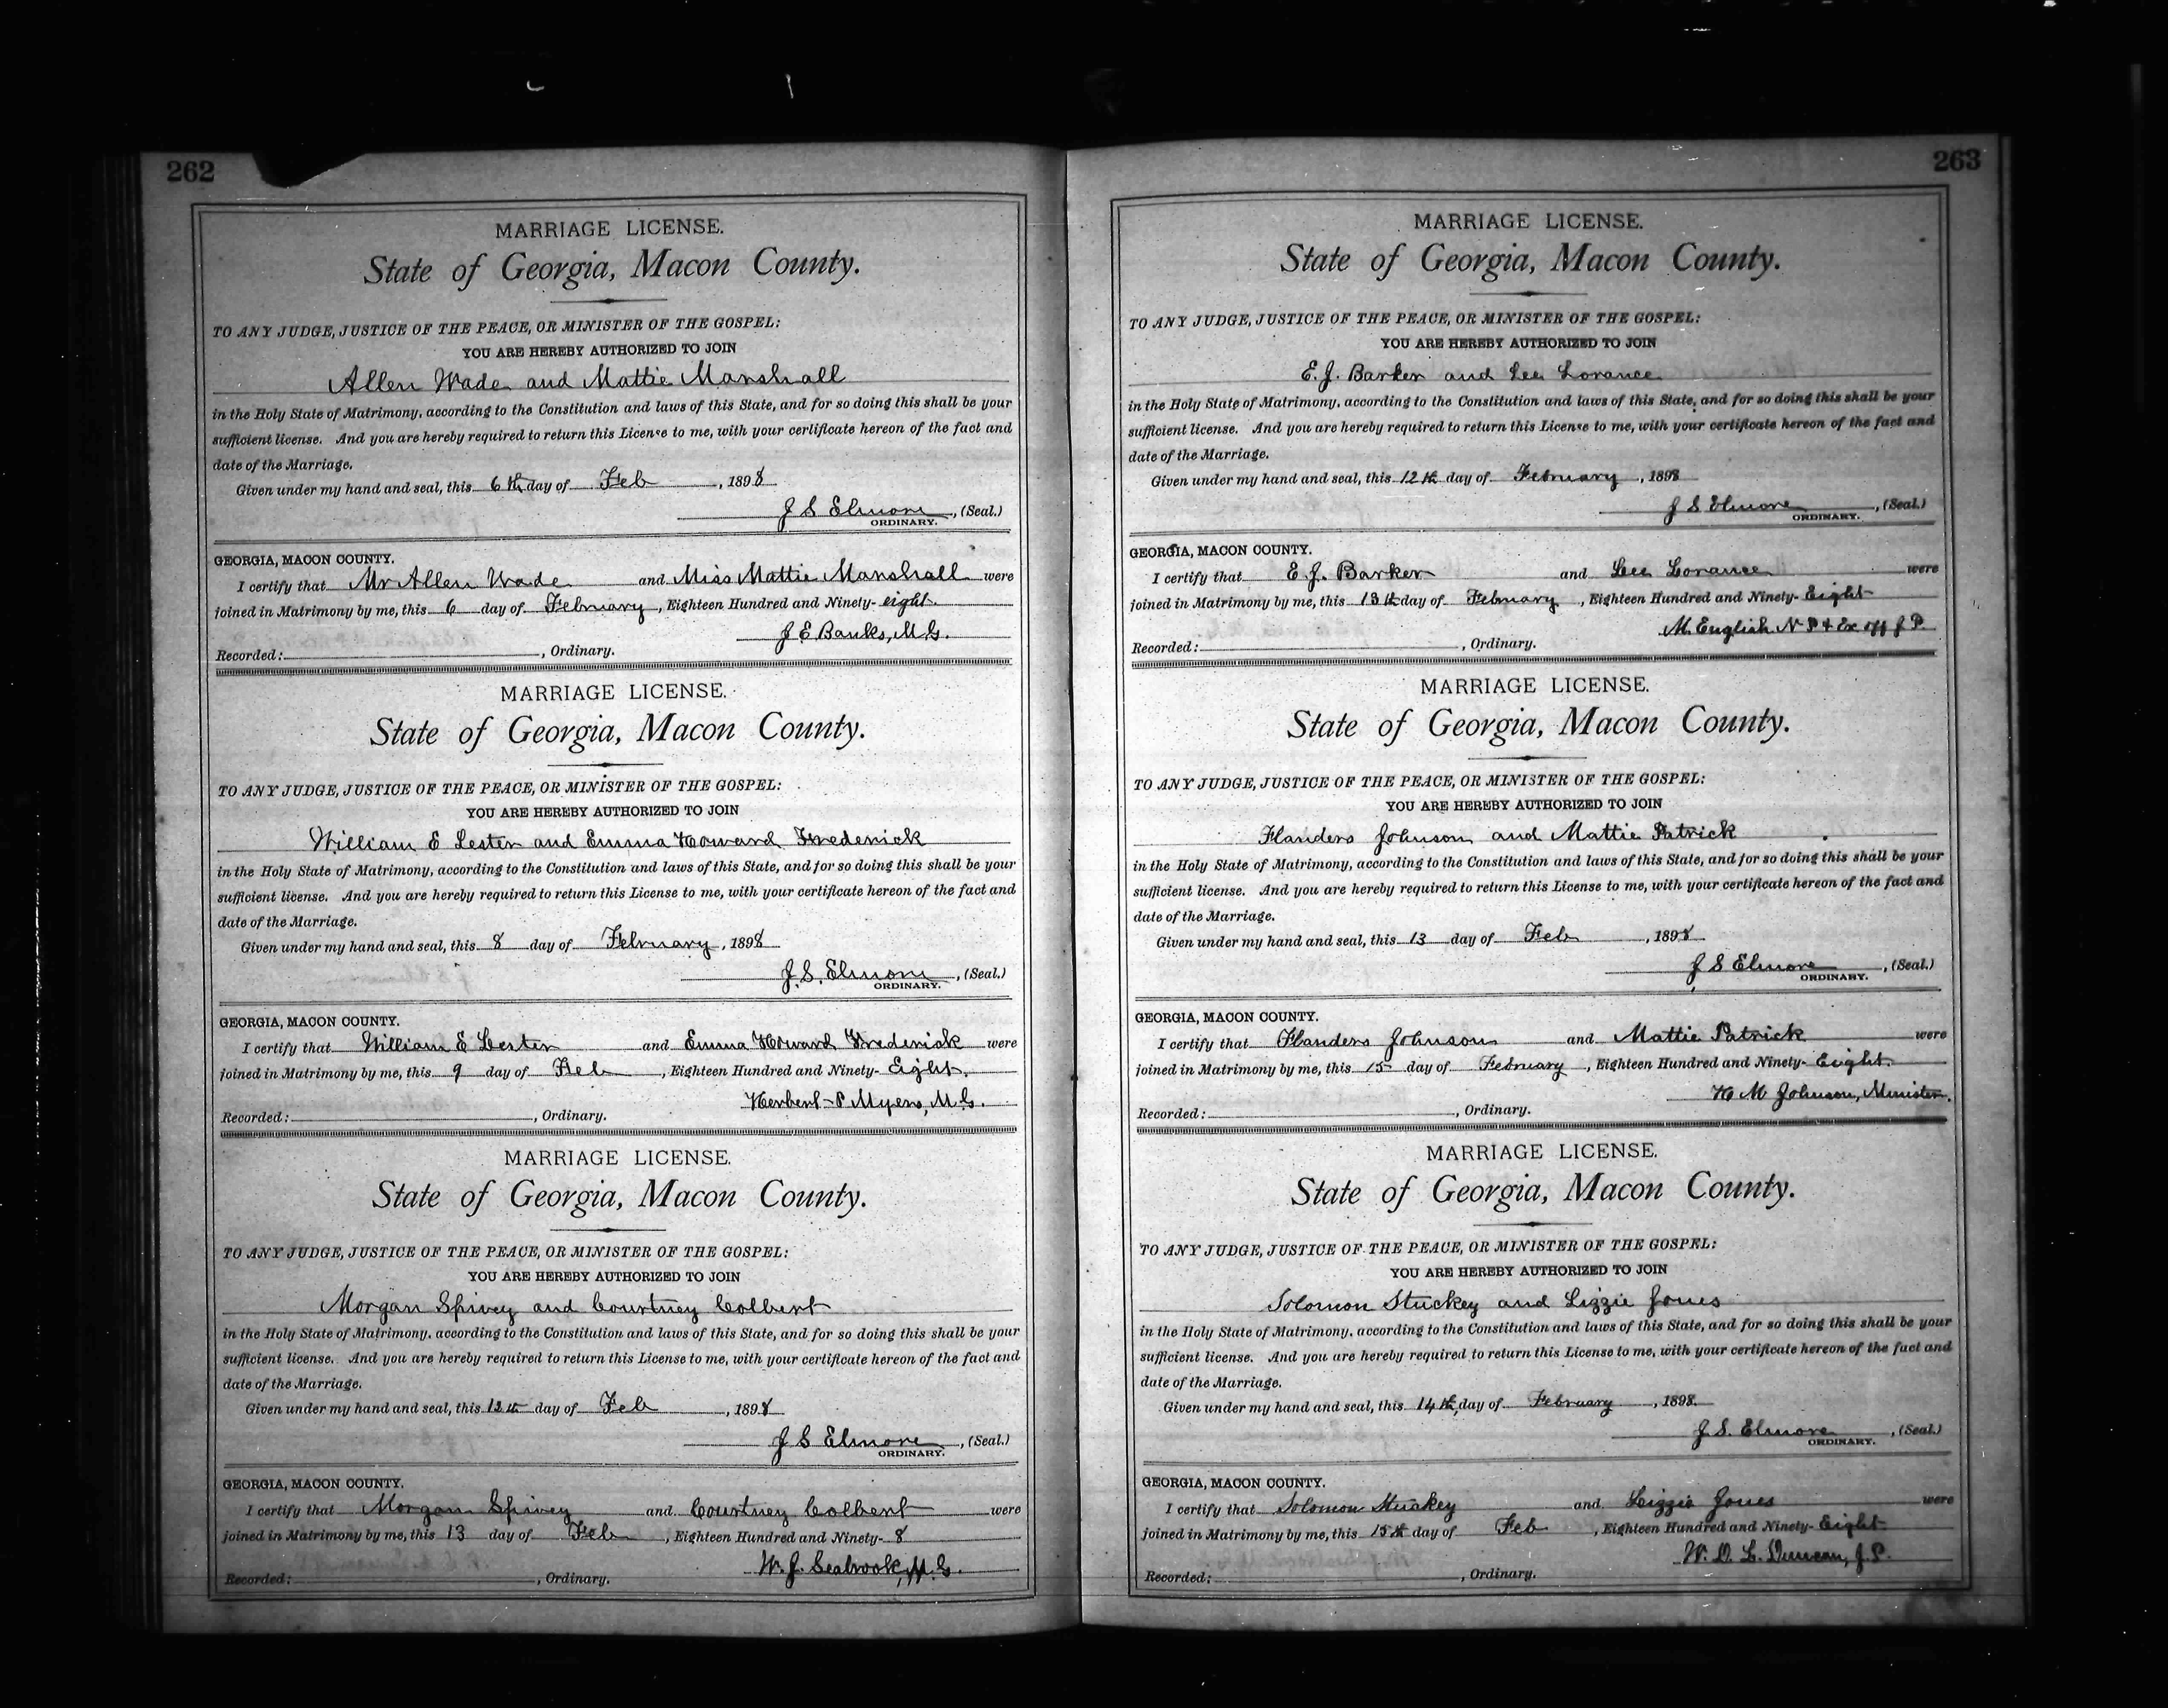 262
MARRIAGE LICENSE.
State of Georgia, Macon County.
TO ANY JUDGE, JUSTICE OF THE PEACE, OR MINISTER OF THE GOSPEL:
YOU ARE HEREBY AUTHORIZED TO JOIN
Allen Wade and Mattie Marshall
in the Holy State of Matrimony, according to the Constitution and laws of this State, and for so doing this shall be your
sufficient license. And you are hereby required to return this License to me, with your certificate hereon of the fact and
date of the Marriage.
Given under my hand and seal, this 6th day of Feb, 1898
J S Elmore, (Seal.)
ORDINARY.
GEORGIA, MACON COUNTY.
I certify that Mr Allen Wade and Miss Mattie Marshall were
joined in Matrimony by me, this 6 day of February, Eighteen Hundred and Ninety-eight.
J E Banks, M.G.
Recorded: , Ordinary.
MARRIAGE LICENSE.
State of Georgia, Macon County.
TO ANY JUDGE, JUSTICE OF THE PEACE, OR MINISTER OF THE GOSPEL:
YOU ARE HEREBY AUTHORIZED TO JOIN
William E Lester and Emma Howard Frederick
in the Holy State of Matrimony, according to the Constitution and laws of this State, and for so doing this shall be your
sufficient license. And you are hereby required to return this License to me, with your certificate hereon of the fact and
date of the Marriage.
Given under my hand and seal, this 8 day of February, 1898
J. S. Elmore, (Seal.)
ORDINARY.
GEORGIA, MACON COUNTY.
I certify that William E Lester and Emma Howard Frederick were
joined in Matrimony by me, this 9 day of Feb, Eighteen Hundred and Ninety-Eight.
Herbert P Myers, M.G.
Recorded: , Ordinary.
MARRIAGE LICENSE.
State of Georgia, Macon County.
TO ANY JUDGE, JUSTICE OF THE PEACE, OR MINISTER OF THE GOSPEL:
YOU ARE HEREBY AUTHORIZED TO JOIN
Morgan Spivey and Courtney Colbert
in the Holy State of Matrimony, according to the Constitution and laws of this State, and for so doing this shall be your
sufficient license. And you are hereby required to return this License to me, with your certificate hereon of the fact and
date of the Marriage.
Given under my hand and seal, this 12th day of Feb, 1898
J S Elmore, (Seal.)
ORDINARY.
GEORGIA, MACON COUNTY.
I certify that Morgan Spivey and Courtney Colbert were
joined in Matrimony by me, this 13 day of Feb, Eighteen Hundred and Ninety-8
W. J. Seabrook, M.G.
Recorded: , Ordinary.
263
MARRIAGE LICENSE.
State of Georgia, Macon County.
TO ANY JUDGE, JUSTICE OF THE PEACE, OR MINISTER OF THE GOSPEL:
YOU ARE HEREBY AUTHORIZED TO JOIN
E. J. Barker and Lee Lorance
in the Holy State of Matrimony, according to the Constitution and laws of this State, and for so doing this shall be your
sufficient license. And you are hereby required to return this License to me, with your certificate hereon of the fact and
date of the Marriage.
Given under my hand and seal, this 12th day of February, 1898
J S Elmore, (Seal.)
ORDINARY.
GEORGIA, MACON COUNTY.
I certify that E. J. Barker and Lee Lorance were
joined in Matrimony by me, this 13th day of February, Eighteen Hundred and Ninety-Eight
M. English N P & Ex off J P.
Recorded: , Ordinary.
MARRIAGE LICENSE.
State of Georgia, Macon County.
TO ANY JUDGE, JUSTICE OF THE PEACE, OR MINISTER OF THE GOSPEL:
YOU ARE HEREBY AUTHORIZED TO JOIN
Flanders Johnson and Mattie Patrick
in the Holy State of Matrimony, according to the Constitution and laws of this State, and for so doing this shall be your
sufficient license. And you are hereby required to return this License to me, with your certificate hereon of the fact and
date of the Marriage.
Given under my hand and seal, this 13 day of Feb, 1898
J S Elmore, (Seal.)
ORDINARY.
GEORGIA, MACON COUNTY.
I certify that Flanders Johnson and Mattie Patrick were
joined in Matrimony by me, this 15 day of February, Eighteen Hundred and Ninety-Eight.
H M Johnson, Minister.
Recorded: , Ordinary.
MARRIAGE LICENSE.
State of Georgia, Macon County.
TO ANY JUDGE, JUSTICE OF THE PEACE, OR MINISTER OF THE GOSPEL:
YOU ARE HEREBY AUTHORIZED TO JOIN
Solomon Stuckey and Lizzie Jones
in the Holy State of Matrimony, according to the Constitution and laws of this State, and for so doing this shall be your
sufficient license. And you are hereby required to return this License to me, with your certificate hereon of the fact and
date of the Marriage.
Given under my hand and seal, this 14th, day of February, 1898.
J. S. Elmore, (Seal.)
ORDINARY.
GEORGIA, MACON COUNTY.
I certify that Solomon Stuckey and Lizzie Jones were
joined in Matrimony by me, this 15th day of Feb, Eighteen Hundred and Ninety-Eight
W. D. L. Duncan, J.P.
Recorded: , Ordinary.